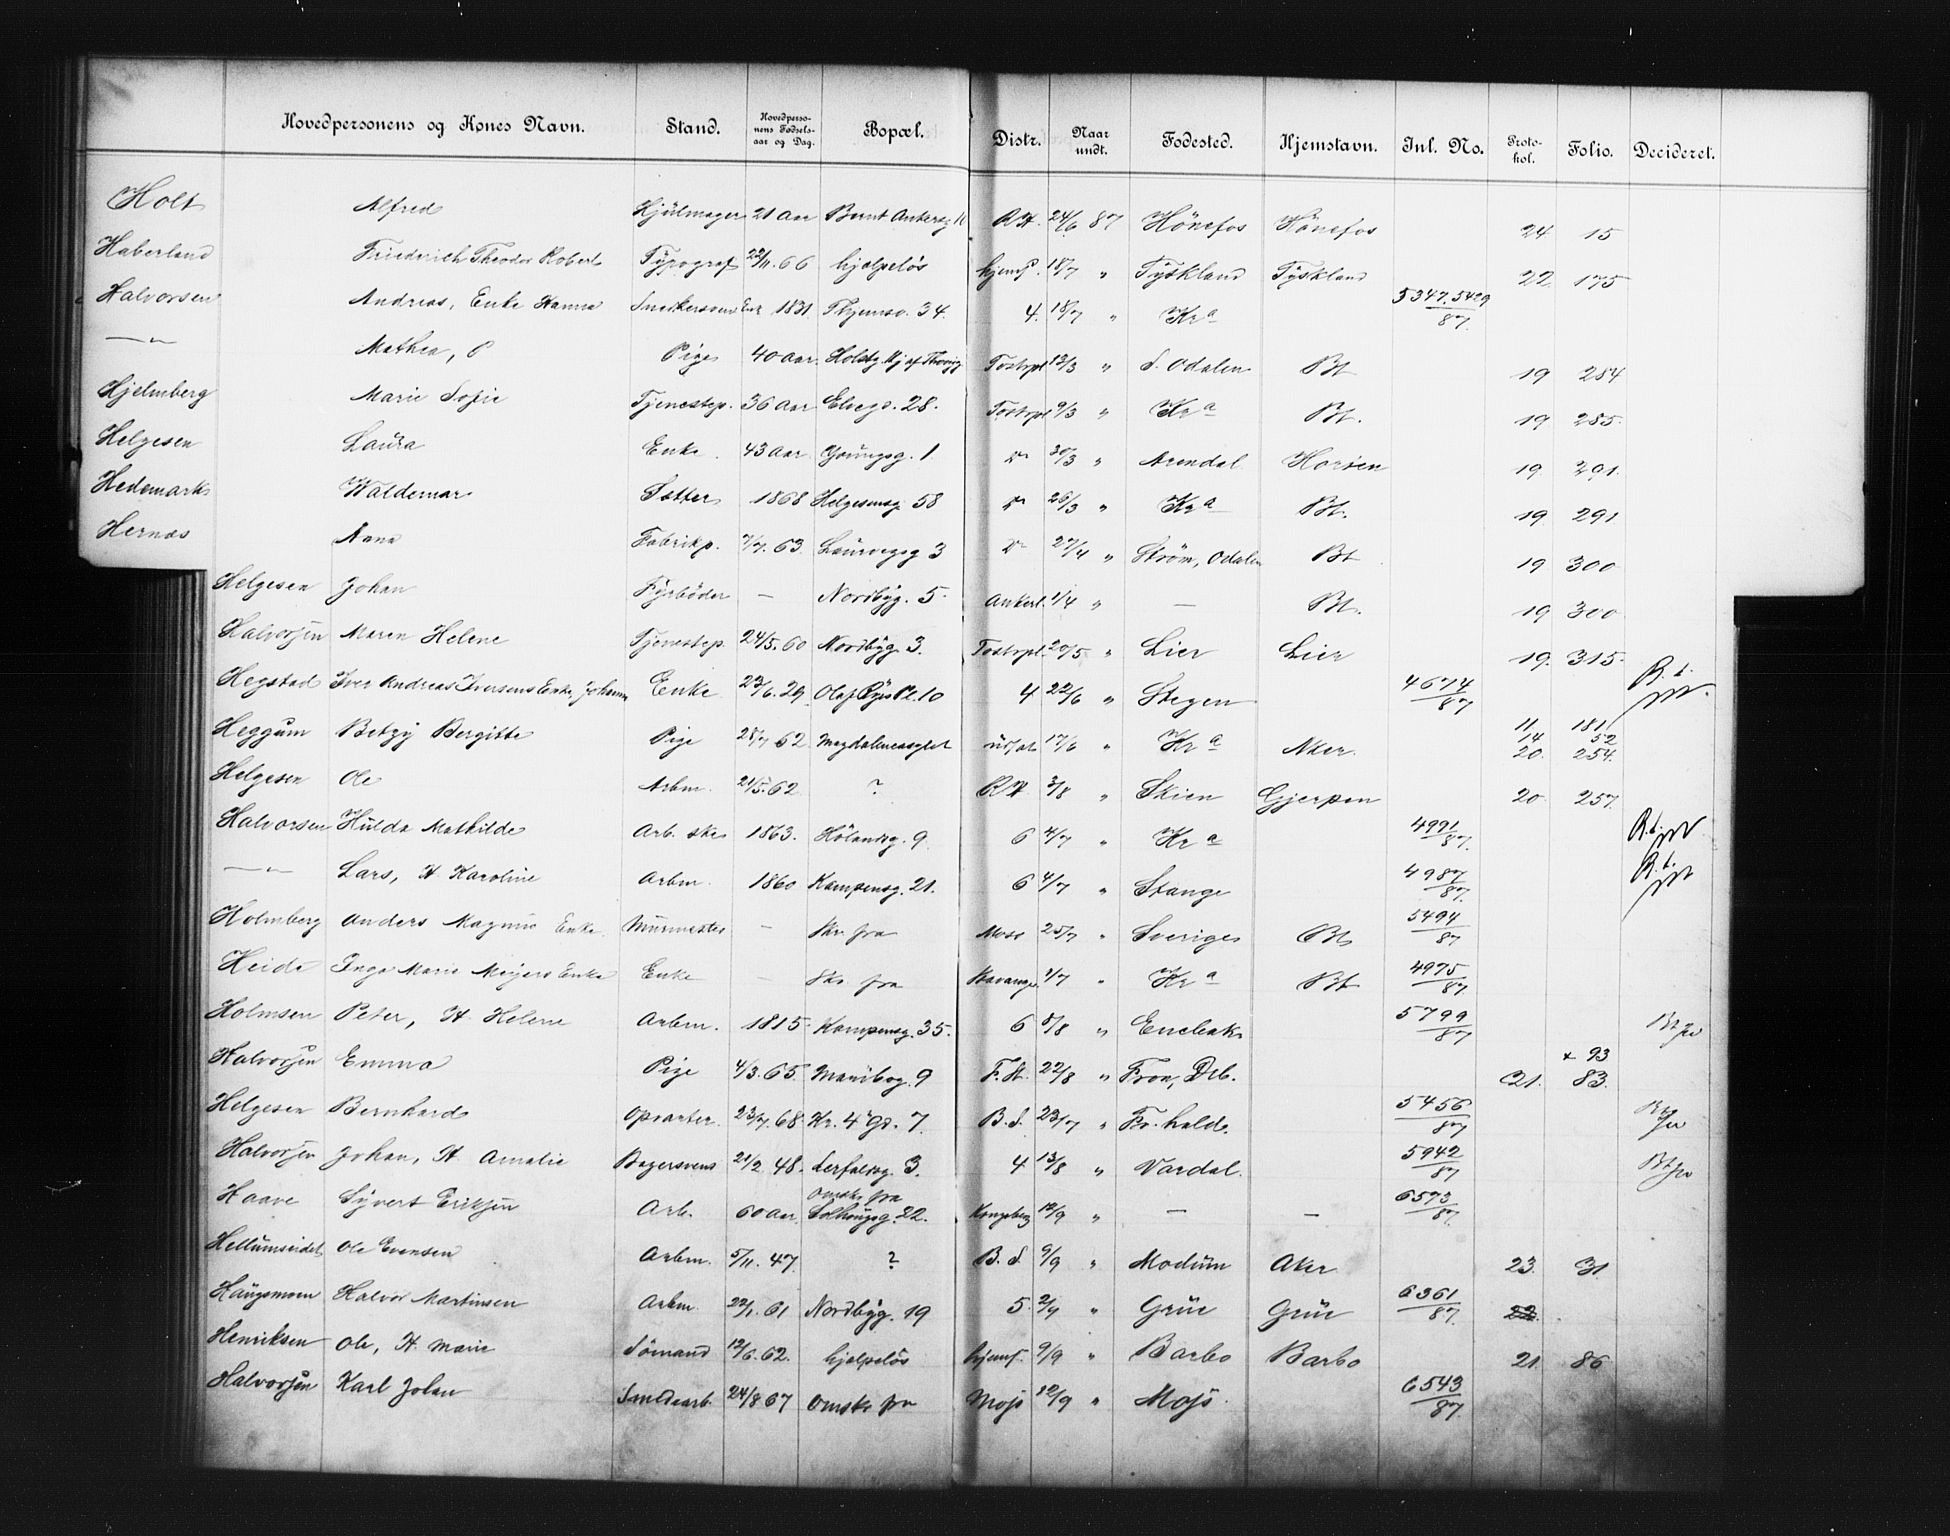 Hovedpersonens og Kones Navn. Stand. Hovedpersonens Fødselsaar og Dag. Bopæl. Distr. Naar undt. Fødested. Hjemstavn. Inl. No. Protokol. Folio. Decideret.
Holt Alfred Hjulmager 21 Aar Bernt Ankersg 11 R.H. 24/6 87 Hönefos Hönefos 24 15
Haberland Friederich Theodor Robert Typograf 22/11.66 hjælpelös hjemf. 18/7 " Tyskland Tyskland 22 175
Halvorsen Andreas, Enke Hanna Snedkersvend Enk 1831 34. 4. 18/7 " Kr a 5347.5429/87
—"— Mathea, P Pige 40 Aar. Tostrpl 12/3 " S. Odalen Bt 19 284
Hjelmberg Marie Sofie Tjenestep. 36 Aar Elvegd. 28. Tostrpl 9/3 " Kr a Bt. 19 285.
Helgesen Laura Enke. 43 Aar Youngsg. 1 Do 30/3 " Arendal Horsen 19 291.
Hedemark Waldemar Sætter 1868 Helgesensg 58 Do 26/3 " Kr a Bt. 19 291
Hernæs Anna Fabrikp. 7/7. 63. Laurvegsg 3 Do 27/4 " Ström, Odalen Bt 19 300
Helgesen Johan Fyrböder — Nordbyg. 5. Ankerl. 1/4 " — Bt. 19 300
Halvorsen Maren Helene Tjenestep. 24/5. 60 Nordbyg 3. Tostrpl. 20/5 " Lier Lier 19. 315.
Hegstad Iver Andreas Iversens Enke, Johanne Enke 23/6. 29 Olaf Ryes Pl. 10 4 22/6 " Stegen 4674/87 B.t.
Heggum Betzy Bergitte Pige 28/7 62 Magdaleneasylet udsat 17/6 " Kr a Aker. 11 14 20. 181 52 254.
Helgesen Ole Arbm. 21/5. 62 ? R.H. 3/8 " Skien Gjerpen 20. 257.
Halvorsen Hulda Mathilde Arb. ske 1863. Hölandsg. 9 6 4/7 " Kr a 4991/87. B.t.
—"— Lars, H. Karoline Arbm. 1860 Kampensg. 21. 6 4/7 " Stange 4987/87. B.t.
Holmberg Anders Magnus Enke. Murmester — Skr. fra Moss 25/7 " Sverige Bt 5494/87
Heide Inga Marie Meyers Enke Enke — Skr. fra Stavanger 1/7 " Kr a Bt 4975/87.
Holmsen Peter, H. Helene Arbm. 1815. Kampensg. 35. 6 5/8 " Enebak 5799/87 Bt
Halvorsen Emma Pige 4/3. 65. Maribog. 9 F.St. 22/8 " Fron, Drb. 21. x 93 83.
Helgesen Bernhard Opvarter. 23/7. 68. Kr. 4' Gd. 7. B.S. 23/7 " Fr. hald. 5456/87 Bt
Halvorsen Johan, H. Amalie Bagersvend 21/2 48. Lerfaldsg. 3. 4 13/8 " Vardal. 5942/87 Bt
Haave Syvert Eriksen Arb. 60 Aar. Omsk. fra Solhaugsg. 22. Kongsberg 12/9 " — — 6573/87.
Hellumseidet Ole Evensen Arbm. 5/11. 47 ? B.S. 9/9 " Modum Aker 23. 31
Haugsmoen Halvor Martinsen Arbm. 22/1. 61 Nordbyg. 19 5. 2/9 " Grue Grue 6361/87. 22.
Henriksen Ole, H. Marie Sömand 12/6. 62. hjælpelös hjemf. 9/9 " Barbo Barbo 21 86
Halvorsen Karl Johan Smedearb. 24/8 67 Omsk. fra Moss 12/9 " Moss. 6543/87.